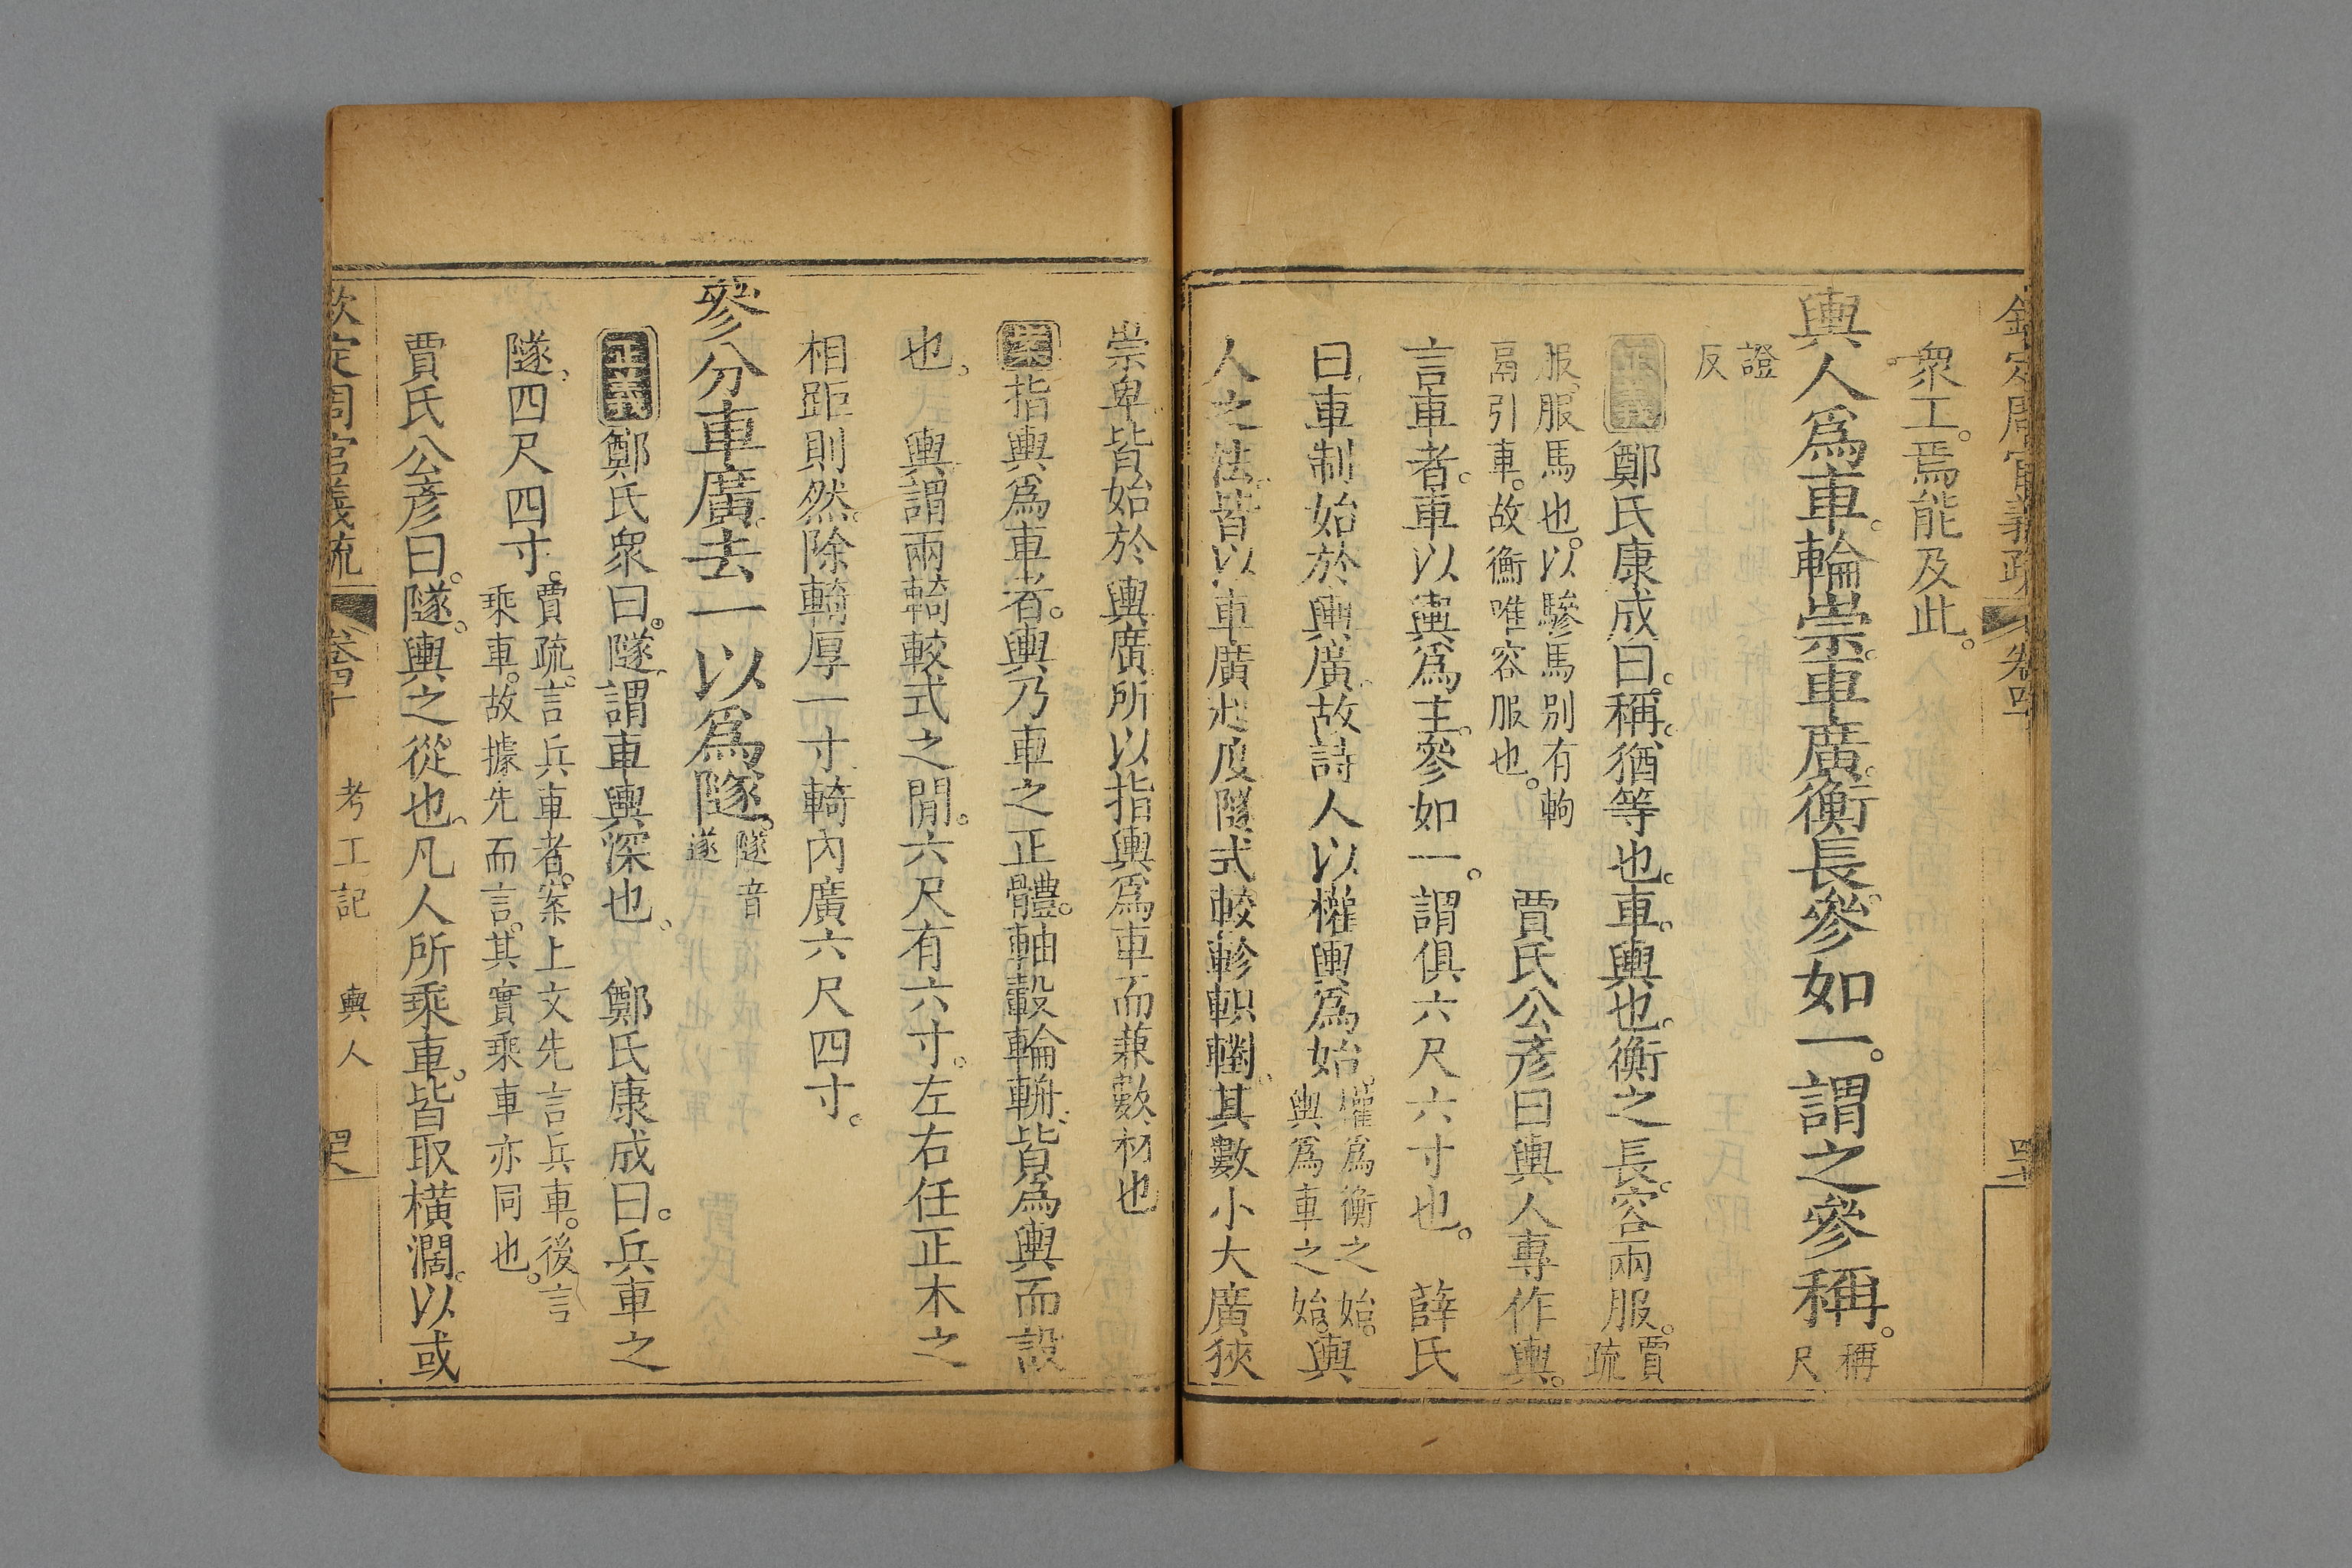 欽定周官義疏 卷四十
衆工焉能及此
輿人爲車輪崇車廣衡長參如一謂之參稱稱尺
證反
正義鄭氏康成曰稱猶等也車輿也衡之長容兩服賈疏
服服馬也以驂馬別有軥鬲引車故衡唯容服也 賈氏公彥曰輿人專作輿
言車者車以輿爲主參如一謂俱六尺六寸也 薛氏
曰車制始於輿廣故詩人以權輿爲始權爲衡之始輿爲車之始輿
人之法皆以車廣起度隧式較軫軹轛其數小大廣狹
崇卑皆始於輿廣所以指輿爲車而兼數材也
案指輿爲車者輿乃車之正體軸轂輪輈皆爲輿而設
也 輿謂兩輢較式之閒六尺有六寸左右任正木之
相距則然除輢厚一寸輢內廣六尺四寸
參分車廣去一以爲隧隧音遂
正義鄭氏衆曰隧謂車輿深也 鄭氏康成曰兵車之
隧四尺四寸賈疏言兵車者案上文先言兵車後言乘車故據先而言其實乘車亦同也
賈氏公彥曰隧輿之從也凡人所乘車皆取橫濶以或
欽定周官義疏 卷四十 考工記 輿人